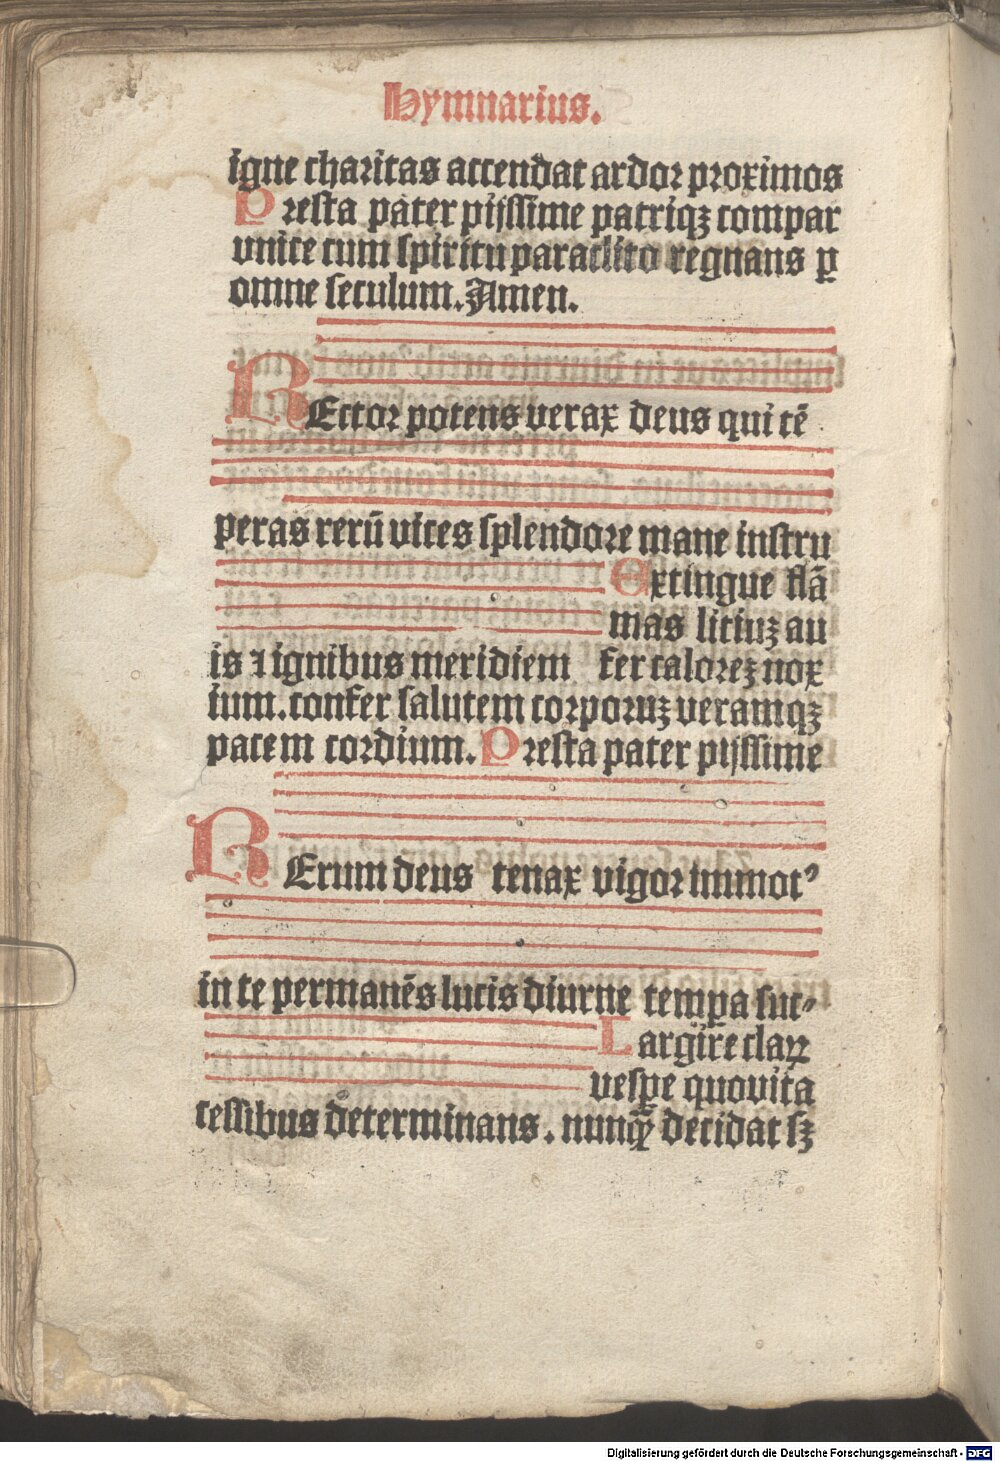 Hymnarius.
igne charitas accendat ardor proximos
Presta pater pijssime patriqꝫ compar
vnice cum spiritu paraclito regnans ꝑ
omne seculum. Amen.
REctor potens verax deus qui tē
peras rerū vices splendore mane instru
Extingue flā
mas litiuꝫ au
is ⁊ ignibus meridiem fer caloreꝫ nox
ium. confer salutem corporuꝫ veramqꝫ
pacem cordium. Presta pater pijssime
RErum deus tenax vigor immotꝰ
in te permanēs lucis diurne temꝑa suc⸗
Largire claꝝ
vesꝑe quo vita
cessibus determinans. nunꝙ̄ decidat sꝫ
Digitalisierung gefördert durch die Deutsche Forschungsgemeinschaft - DFG